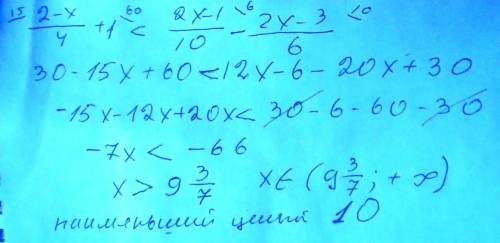 15\ 2-x/4 + 1 60\ < 2x-1/10 6\ - 2x-3/6 \10
30-15x+60<12x-6-20x+30
-15x-12x+20x< 30-6-60-30
-7x < -66
x > 9 3/7 x∈(9 3/7; +∞)
наименьший целый 10